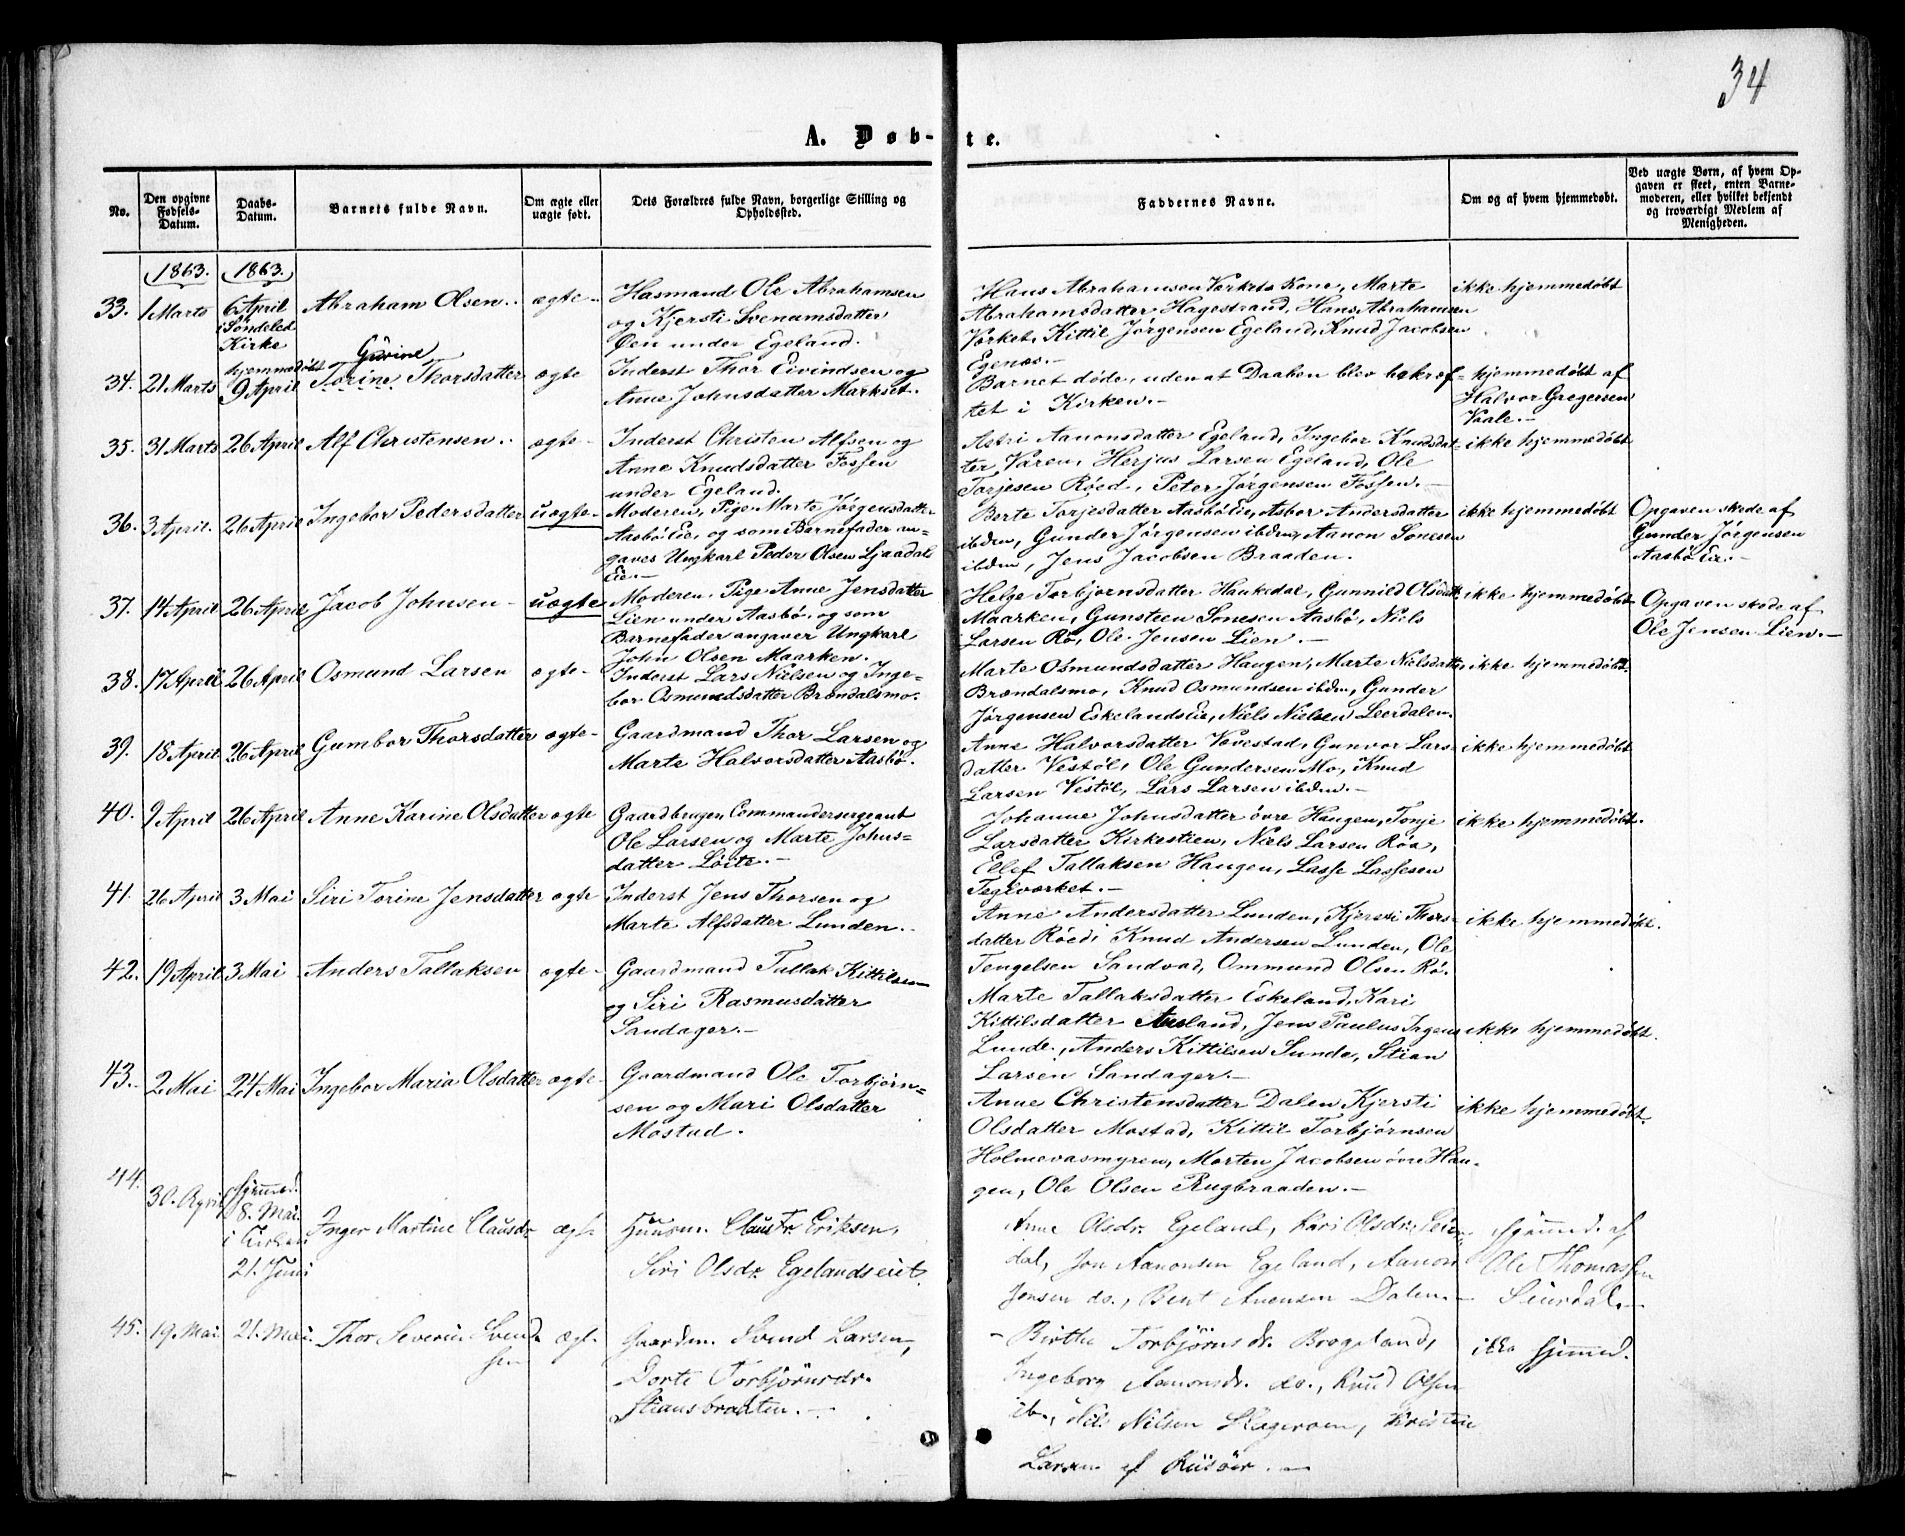 34
A. Døb-te.
No.
Den opgivne Fødsels-Datum.
Daabs-Datum.
Barnets fulde Navn.
Om ægte eller uægte født.
Dets Forældres fulde Navn, borgerlige Stilling og Opholdssted.
Faddernes Navne.
Om og af hvem hjemmedøbt.
Ved uægte Børn, af hvem Opgaven er skeet, enten Barnemoderen, eller hvilket bekjendt og troværdigt Medlem af Menigheden.
1863. 1863.
33. 1 Marts 6 April i Søndeled Kirke Abraham Olsen. ægte-
Husmand Ole Abrahamsen
og Kjersti Svenumsdatter
Øen under Egeland.
Hans Abrahamsen Værkets Kone, Marte
Abrahamsdatter Hagestrand, Hans Abrahamsen
Værket, Kittil Jørgensen Egeland, Knud Jacobsen
Egenæs.-
ikke hjemmedøbt
34. 21 Marts hjemmedøbt 9 April Gurine Torine Thorsdatter ægte
Inderst Thor Eivindsen og
Anne Johnsdatter Markset.
Barnet døde, uden at Daaben blev bekræf-
tet i Kirken.-
hjemmedøbt af
Halvor Gregersen
Vaale.-
35. 31 Marts 26 April Alf Christensen. ægte-
Inderst Christen Alfsen og
Anne Knudsdatter Fossen
under Egeland.
Astri Aanonsdatter Egeland, Ingebor Knudsdat-
ter Varen, Herjus Larsen Egeland, Ole
Torjesen Røed, Peter Jørgensen Fossen.-
ikke hjemmedøbt
36. 3 April. 26 April Ingebor Pedersdatter uægte-
Moderen, Pige Marte Jørgensdatter
Aasbø Eie, og som Barnefader an-
gaves Ungkarl Peder Olsen Ljaadal
Eie.-
Berte Torjesdatter Aasbø Eie, Asbor Andersdatter
ibdm, Gunder Jørgensen ibdm, Aanon Sonesen
ibdm, Jens Jacobsen Braaden.
ikke hjemmedøbt
Opgaven skede af
Gunder Jørgensen
Aasbø Eie.-
37. 14 April 26 April Jacob Johnsen- uægte
Moderen, Pige Anne Jensdatter
Lien under Aasbø, og som
Barnefader angaver Ungkarl
John Olsen Maarken.
Helge Torbjørnsdatter Haukedal, Gunnild Olsdatt.
Maarken, Gunsteen Sonesen Aasbø, Niels
Larsen Rø, Ole Jensen Lien.-
ikke hjemmedøbt
Opgaven skede af
Ole Jensen Lien.-
38. 17 April 26 April Osmund Larsen ægte-
Inderst Lars Nielsen og Inge-
bor Osmundsdatter Brændalsmo.
Marte Osmundsdatter Haugen, Marte Nielsdatter
Brændalsmo, Knud Osmundsen ibdm, Gunder
Jørgensen Eskelands Eie, Niels Nielsen Leerdalen.
ikke hjemmedøbt.
39. 18 April 26 April Gumbor Thorsdatter ægte-
Gaardmand Thor Larsen og
Marte Halvorsdatter Aasbø.
Anne Halvorsdatter Vævestad, Gunvor Lars-
datter Vestøl, Ole Gundersen Mo, Knud
Larsen Vestøl, Lars Larsen ibdm.-
ikke hjemmedøbt
40. 9 April 26 April Anne Karine Olsdatter ægte
Gaardbruger, Commandersergeant
Ole Larsen og Marte Johns-
datter Løite.-
Johanne Johnsdatter øvre Haugen, Tonje
Larsdatter Kirkestien, Niels Larsen Røa,
Ellef Tallaksen Haugen, Lasse Lassesen
Teglværket.-
ikke hjemmedøbt.
41. 26 April 3 Mai Siri Torine Jensdatter ægte
Inderst Jens Thorsen og
Marte Alfsdatter Lunden.
Anne Andersdatter Lunden, Kjersti Thors-
datter Røed, Knud Andersen Lunden, Ole
Tengelsen Sandvad, Ommund Olsen Rø.
ikke hjemmedøbt.
42. 19 April 3 Mai Anders Tallaksen ægte-
Gaardmand Tallak Kittilsen
og Siri Rasmusdatter
Sandager.-
Marte Tallaksdatter Eskeland, Kari
Kittilsdatter Ausland, Jens Paulus Ingens
Lunde, Anders Kittilsen Sunde, Stian
Larsen Sandager.-
ikke hjemmedøbt.
43. 2 Mai 24 Mai Ingebor Maria Olsdatter ægte-
Gaardmand Ole Torbjørn-
sen og Mari Olsdatter
Mostad.
Anne Christensdatter Dalen, Kjersti
Olsdatter Mostad, Kittil Torbjørnsen
Holmevasmyren, Morten Jacobsen øvre Hau-
gen, Ole Olsen Rugbraaden.-
ikke hjemmedøbt.
44. 30. April hjemmed. 8. Mai. i Kirken 21. Juni Inger Martine Clausdr. ægt.
Huusm. Claus Eriksen,
Siri Olsdr. Egelandseiet.
Anne Olsdr. Egeland, Kari Olsdr. Seier-
dal, Jon Aanonsen Egeland, Aanon
Jensen do., Bent Anensen Dalen.-
hjemmed. af
Ole Thomassen
Seierdal.-
45. 19. Mai 21. Mai. Thor Severin Svend-
sen ægt.
Gaardm. Svend Larsen,
Dorte Torbjørnsdr.
Stiansbraaten.-
Birthe Torbjørnsdr. Brogeland,
Ingeborg Aanonsdr. do., Knud Olsen
ib., Nils Nilsen Skageroen, Kristen
Larsen af Riisöer.-
ikke hjemmed.